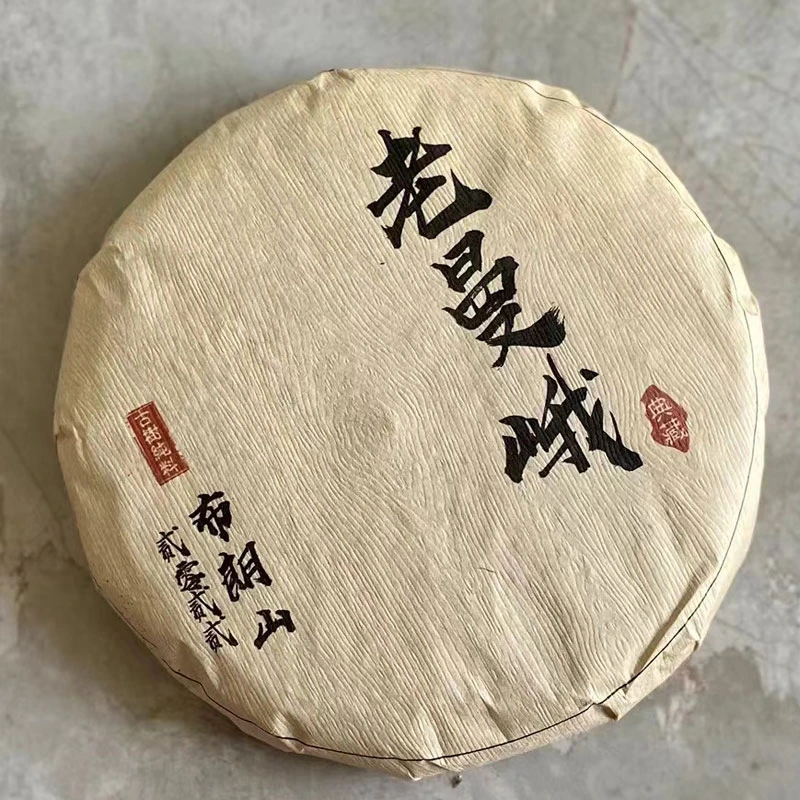 老曼峨
典藏
古樹純料
布朗山
贰零贰贰